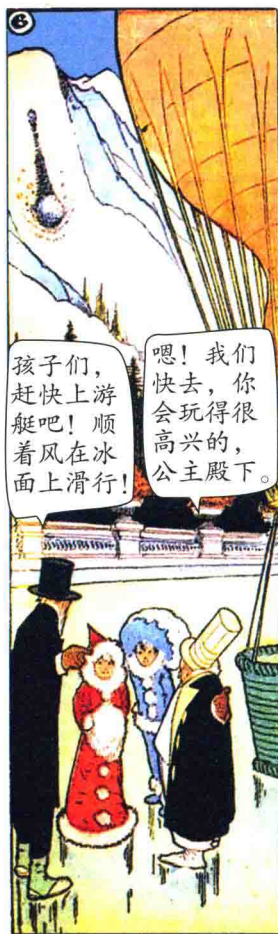 6
孩子们，
赶快上游
艇吧！顺
着风在冰
面上滑行！
嗯！我们
快去，你
会玩得很
高兴的，
公主殿下。